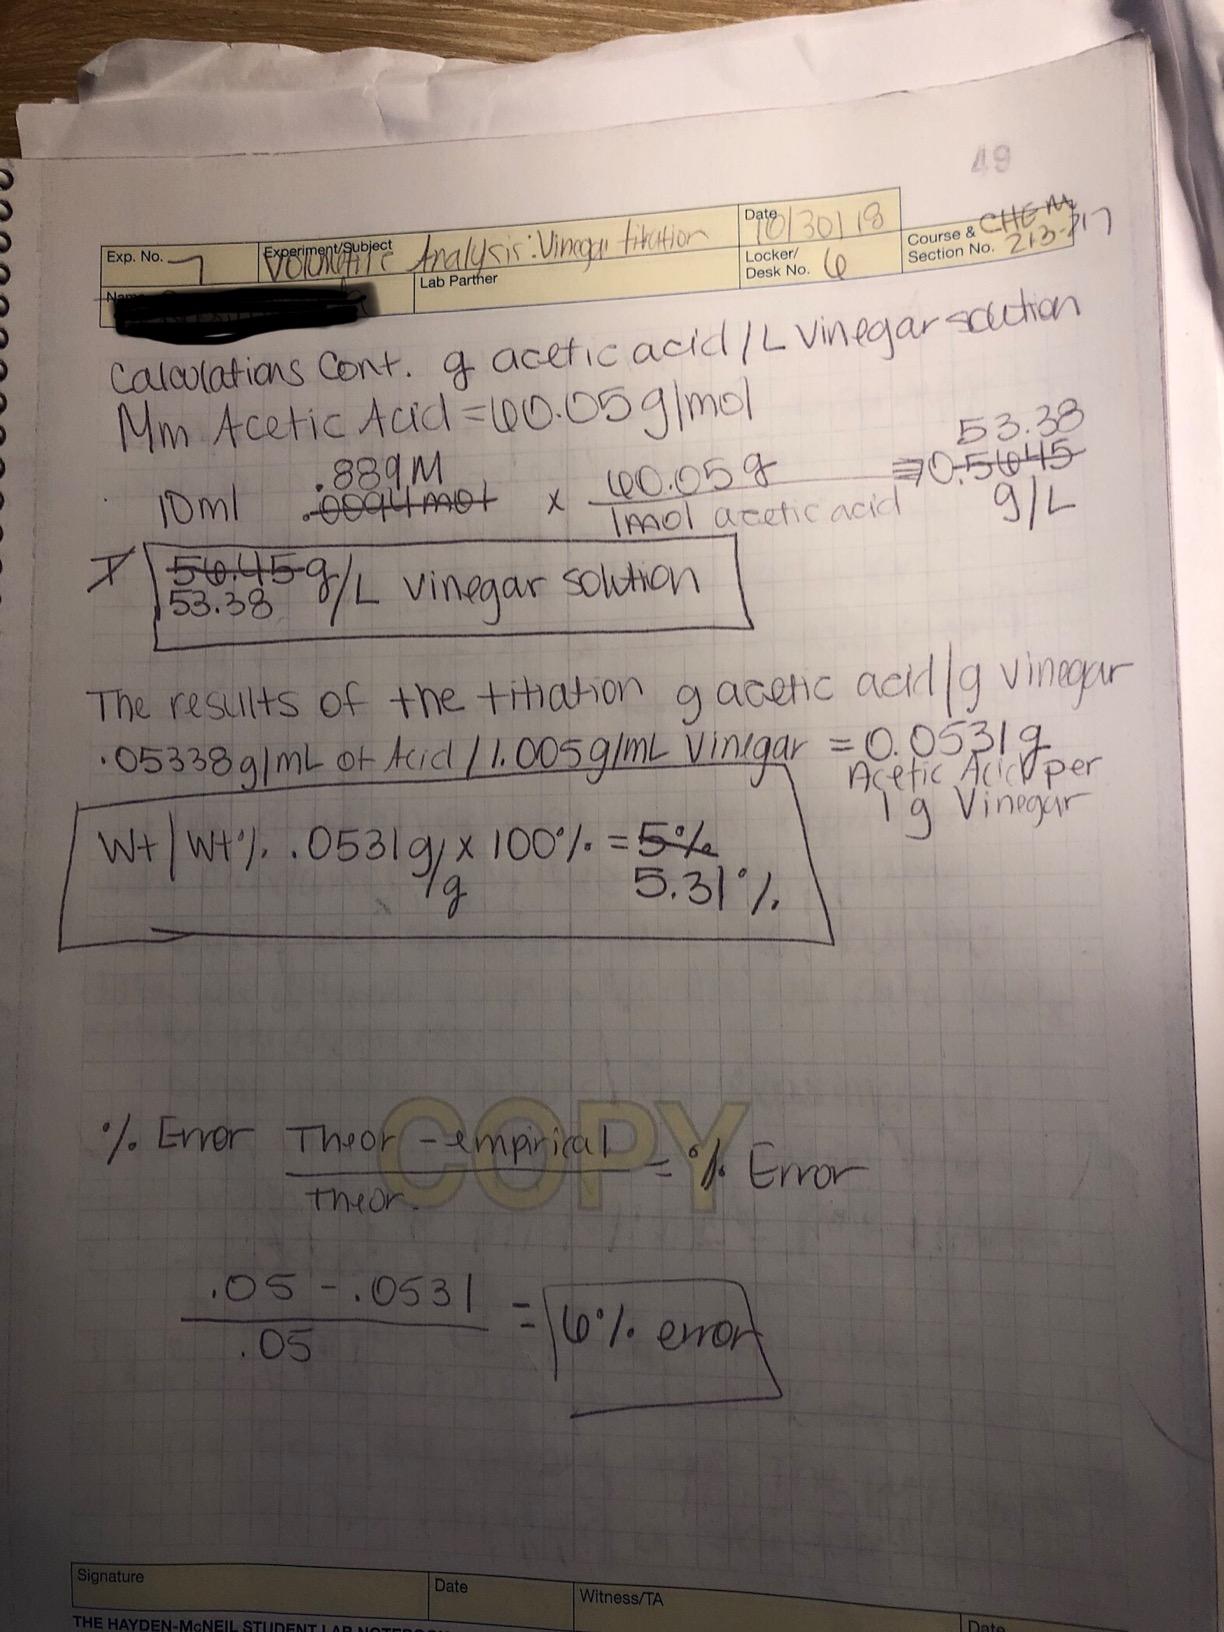 49
Exp. No. 7
Experiment/Subject Volumetric Analysis: Vinegar titration
Date 10/30/18
Course & Section No. CHEM 213-717
Name
Lab Partner
Locker/ Desk No. 6
Calculations Cont. g acetic acid/L vinegar solution
Mm Acetic Acid = 60.05 g/mol
.889M 53.38
10ml .0094 mol x 60.05g / 1mol acetic acid = 0.5645 g/L
56.45 g/L vinegar solution
53.38
The results of the titration g acetic acid/g vinegar
.05338g/mL of Acid / 1.005g/mL Vinegar = 0.0531g
Acetic Acid per
1 g Vinegar
Wt/Wt% .0531g/g x 100% = 5%
5.31%
% Error Theor - empirical / theor. = % Error
.05 - .0531 / .05 = 6% error
COPY
Signature
Date
Witness/TA
Date
THE HAYDEN-McNEIL STUDENT LAB NOTEBOOK